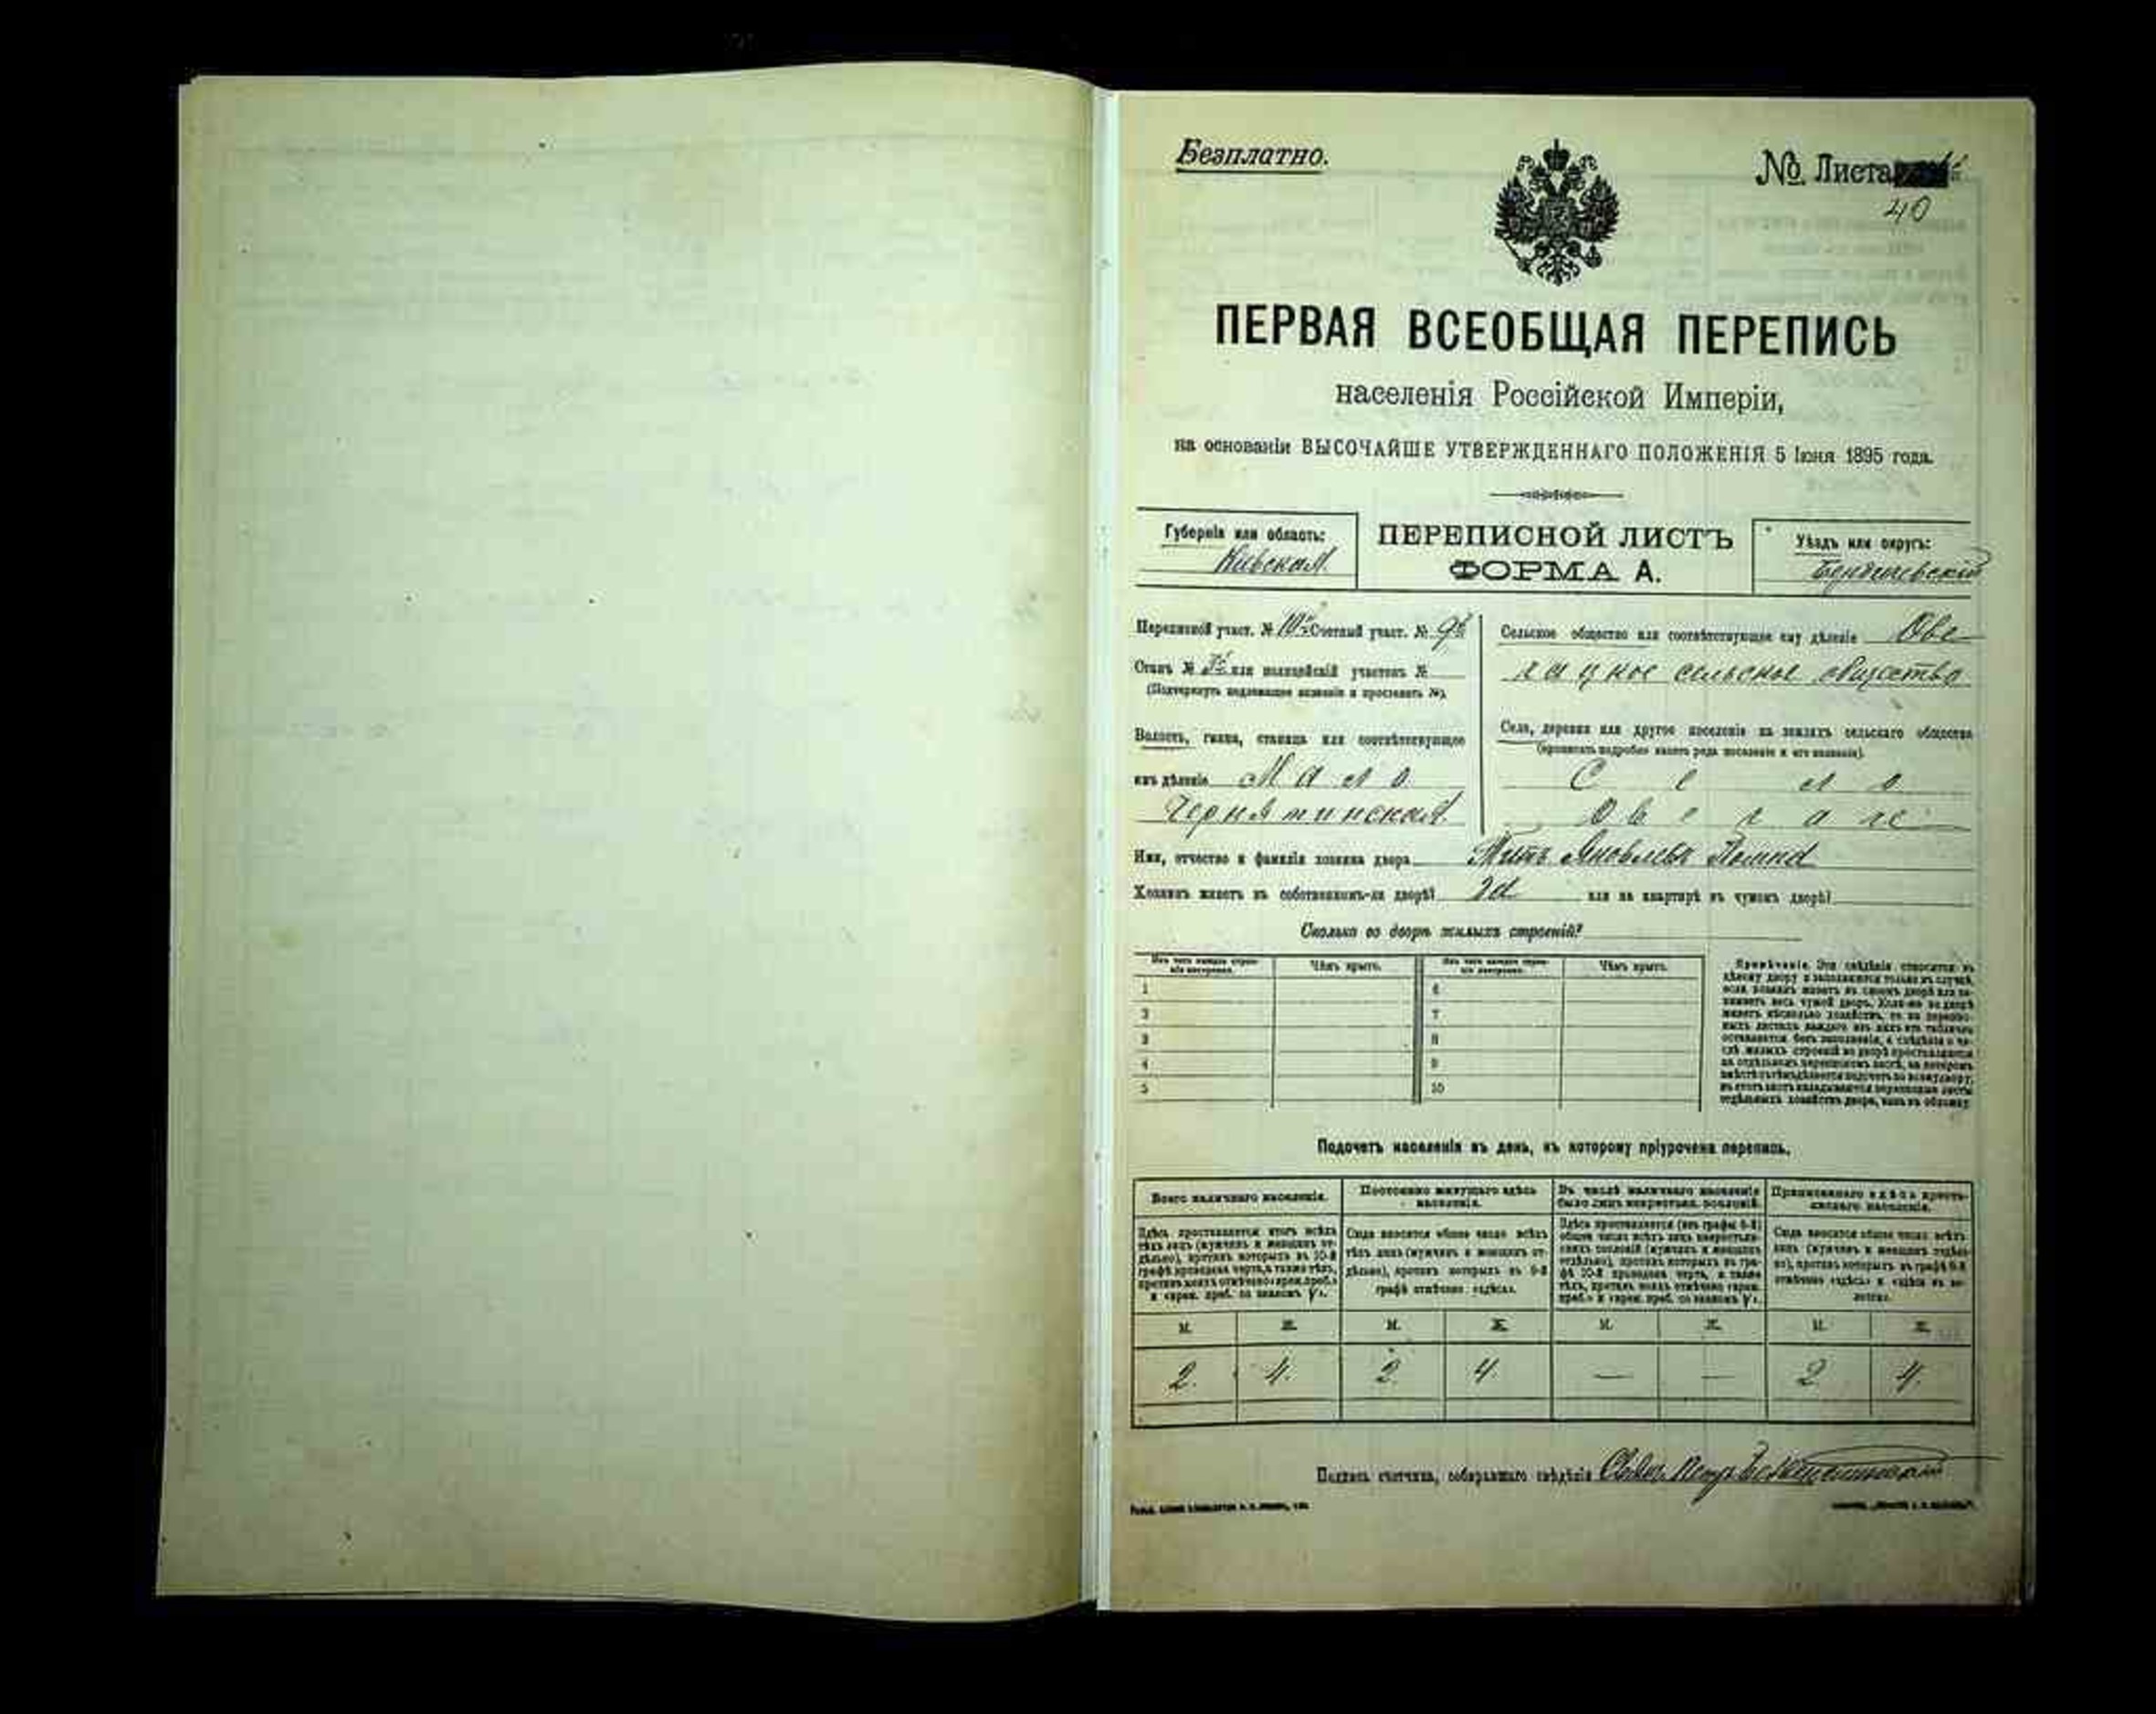 Безплатно.
№ Листа
40
ПЕРВАЯ ВСЕОБЩАЯ ПЕРЕПИСЬ
населенія Россійской Имперіи,
на основаніи ВЫСОЧАЙШЕ УТВЕРЖДЕННАГО ПОЛОЖЕНІЯ 5 Іюня 1895 года.
Губернія или область:
Кіевская
ПЕРЕПИСНОЙ ЛИСТЪ
ФОРМА А.
Уѣздъ или округъ:
Бердичевскій
Переписной участ. № 10й Счетный участ. № 9й
Станъ № или полицейскій участокъ №
(Подчеркнуть надлежащее названіе и проставить №).
Волость, гмина, станица или соотвѣтствующее
имъ дѣленіе Мало
Чернятинская
Сельское общество или соотвѣтствующее ему дѣленіе Ове
чацкое сельское общество
Село, деревня или другое поселеніе на земляхъ сельскаго общества
(прописать подробно какого рода поселеніе и его названіе).
Село
Овечаче
Имя, отчество и фамилія хозяина двора Титъ Яковлевъ
Хозяинъ живетъ въ собственномъ-ли дворѣ? да или на квартирѣ въ чужомъ дворѣ?
Сколько во дворѣ жилыхъ строеній?
Изъ чего каждое строе-
ніе построено.
Чѣмъ крыто.
Изъ чего каждое строе-
ніе построено.
Чѣмъ крыто.
1 6
2 7
3 8
4 9
5 10
Примѣчаніе. Эти свѣдѣнія относятся къ
цѣлому двору и заполняются только въ случаѣ,
если хозяинъ живетъ въ своемъ дворѣ или за-
нимаетъ весь чужой дворъ. Коли-же во дворѣ
живетъ нѣсколько хозяйствъ, то на перепис-
ныхъ листахъ каждаго изъ нихъ эта табличка
оставляется безъ заполненія, а свѣдѣнія о чи-
слѣ жилыхъ строеній во дворѣ проставляются
на отдѣльномъ переписномъ листѣ, на которомъ
вмѣстѣ съ тѣмъ дѣлается подсчетъ по всему двору;
въ этотъ листъ вкладываются переписные листы
отдѣльныхъ хозяйствъ двора, какъ въ обложку.
Подсчетъ населенія въ день, къ которому пріурочена перепись.
Всего наличнаго населенія.
Постоянно живущаго здѣсь
населенія.
Въ числѣ наличнаго населенія
было лицъ некрестьян. сословій.
Приписаннаго здѣсь кресть-
янскаго населенія.
Здѣсь проставляется итогъ всѣхъ
тѣхъ лицъ (мужчинъ и женщинъ от-
дѣльно), противъ которыхъ въ 10-й
графѣ проведена черта, а также тѣхъ,
противъ коихъ отмѣчено «врем. преб.»
и «врем. преб. со знакомъ V».
Сюда вносится общее число всѣхъ
тѣхъ лицъ (мужчинъ и женщинъ от-
дѣльно), противъ которыхъ въ 9-й
графѣ отмѣчено «здѣсь».
Здѣсь проставляется (изъ графы 6-й)
общее число всѣхъ лицъ некрестьян-
скихъ сословій (мужчинъ и женщинъ
отдѣльно), противъ которыхъ въ гра-
фѣ 10-й проведена черта, а также
тѣхъ, противъ коихъ отмѣчено «врем.
преб.» и «врем. преб. со знакомъ V».
Сюда вносится общее число всѣхъ
лицъ (мужчинъ и женщинъ отдѣль-
но), противъ которыхъ въ графѣ 8-й
отмѣчено «здѣсь» и «здѣсь въ во-
лости».
М. Ж. М. Ж. М. Ж. М. Ж.
2. 4. 2 4. — — 2 4.
Подпись счетчика, собиравшаго свѣдѣнія